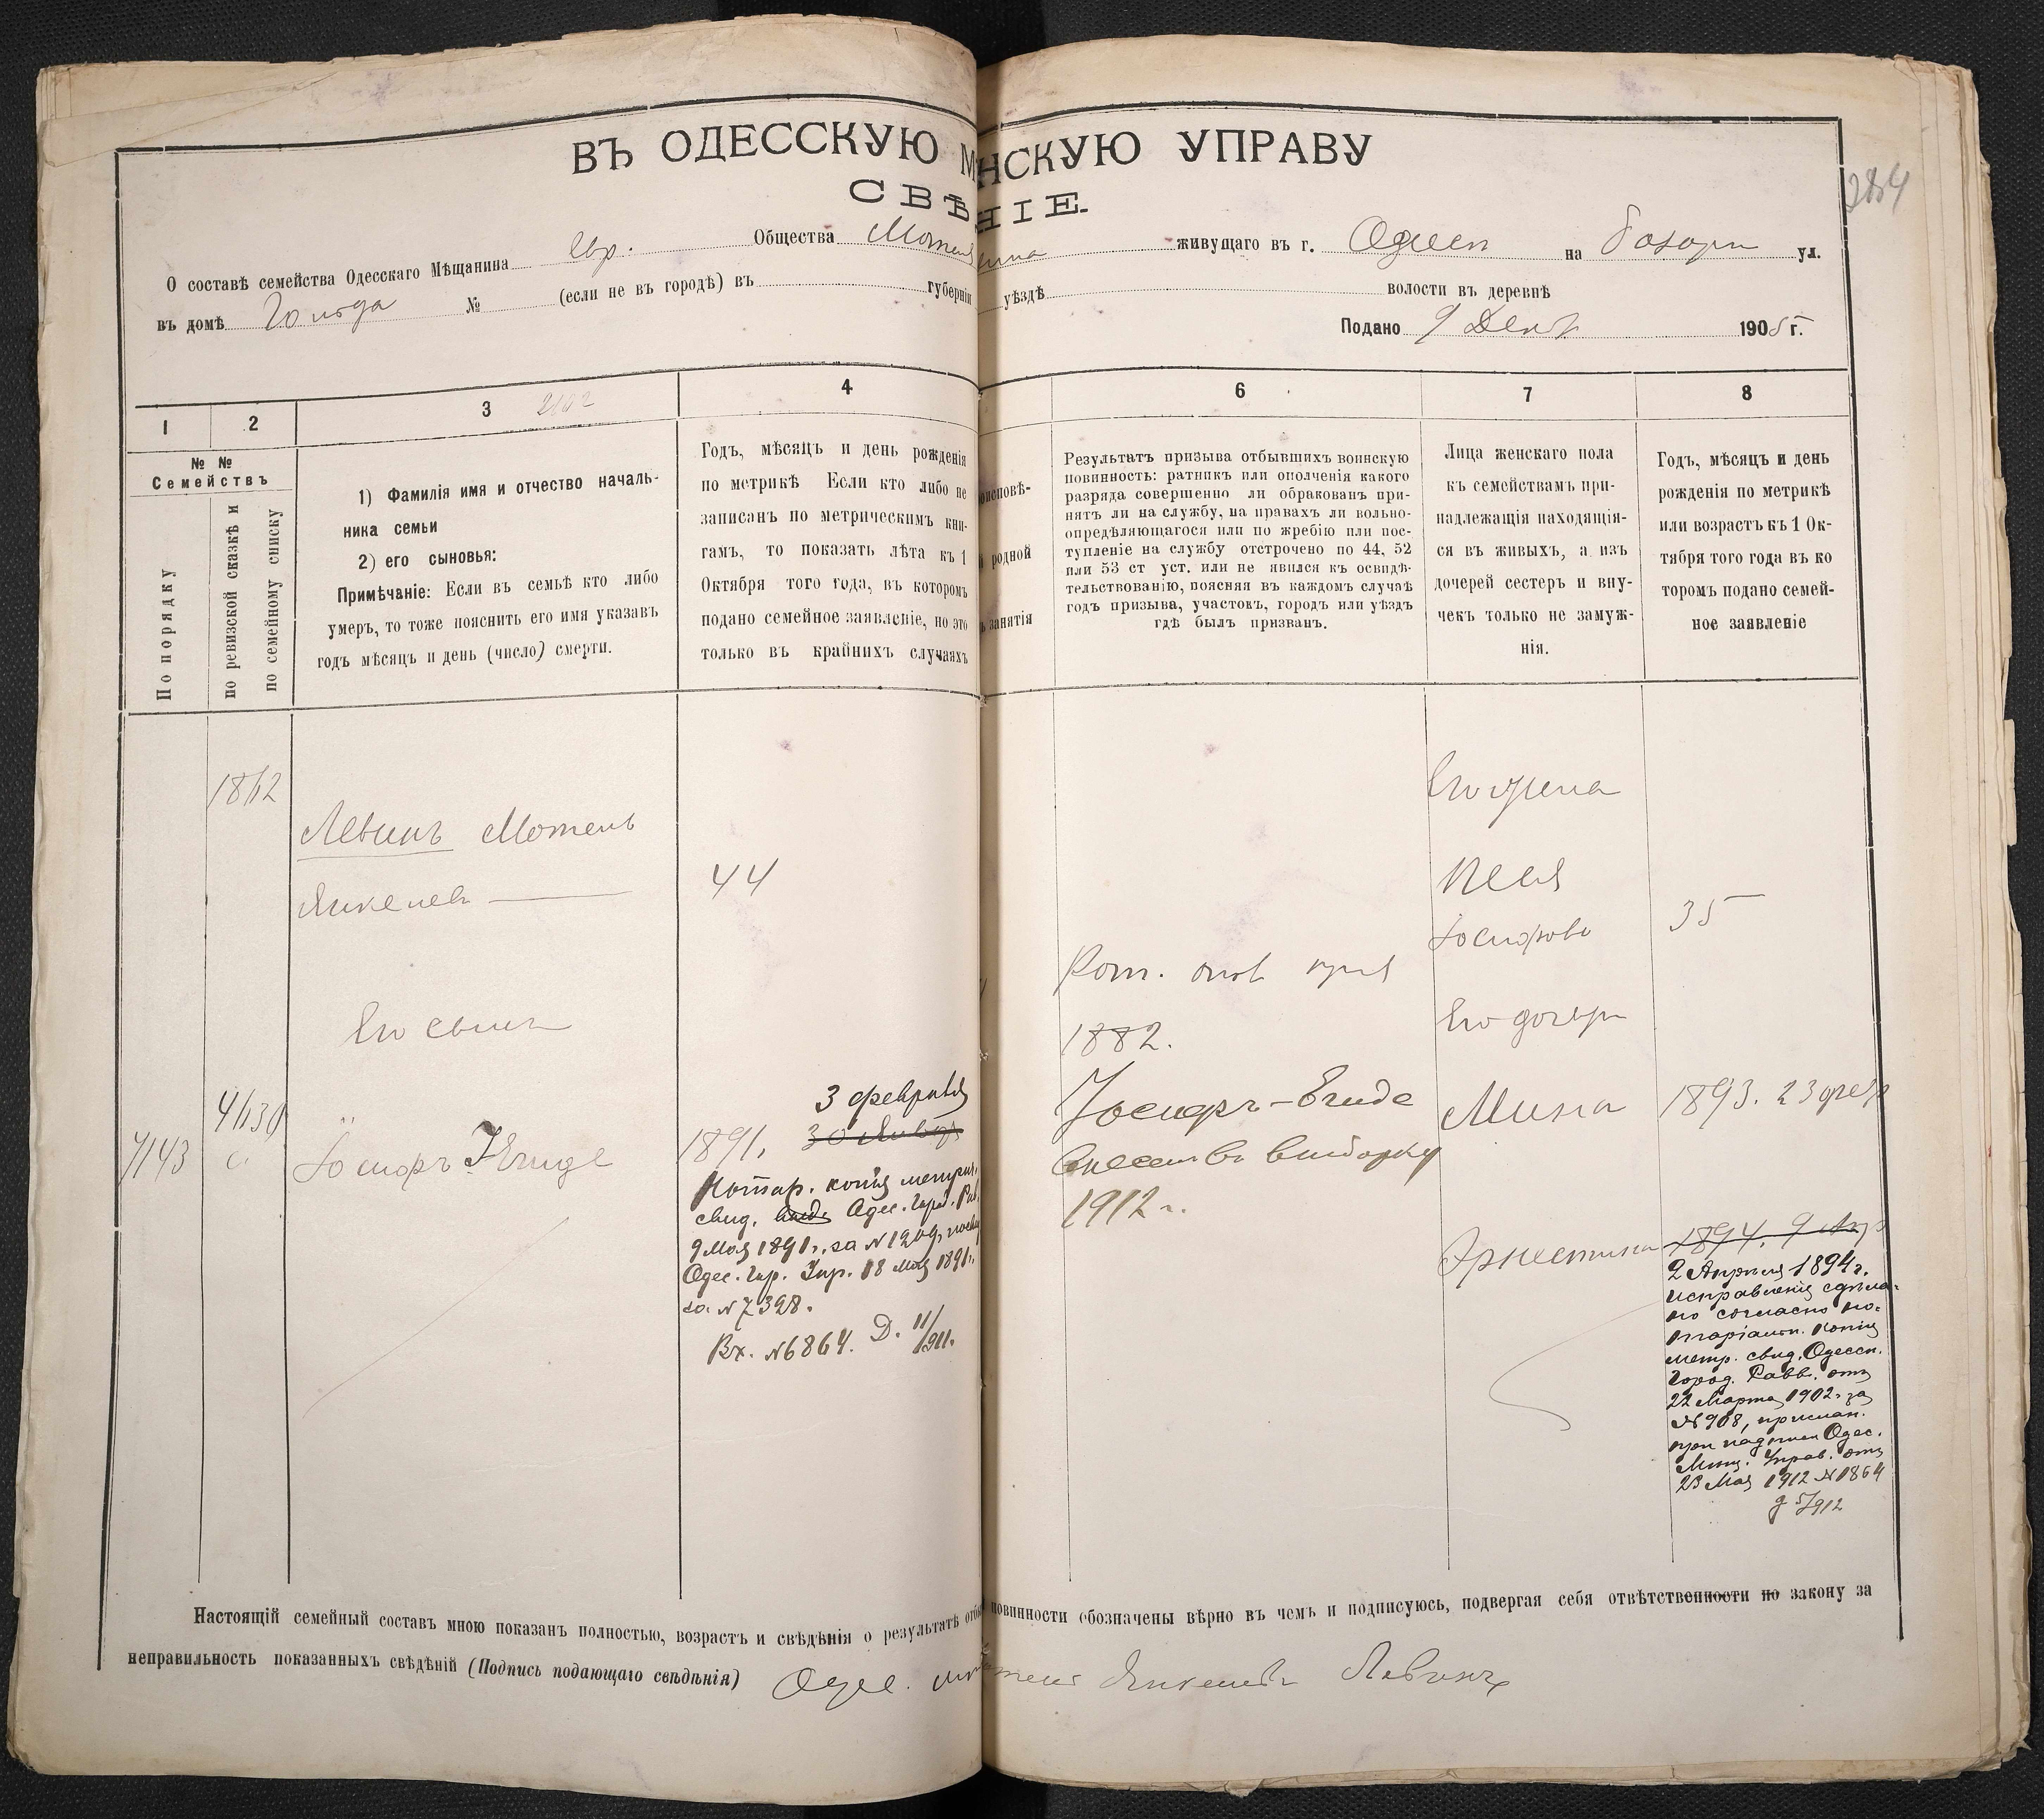 ВЪ ОДЕССКУЮ М НСКУЮ УПРАВУ
СВѢ НІЕ.
284
О составѣ семейства Одесскаго Мѣщанина Евр. Общества живущаго въ г. Одессѣ на Базарн ул.
въ домѣ № (если не въ городѣ) въ губерніи уѣздѣ волости въ деревнѣ
Подано 9 Декб. 1905 г.
1 2 3 4 6 7 8
№ №
Семействъ
По порядку
по ревизской сказкѣ и
по семейному списку
1) Фамилія имя и отчество началь-
ника семьи
2) его сыновья:
Примѣчаніе: Если въ семьѣ кто либо
умеръ, то тоже пояснить его имя указавъ
годъ мѣсяцъ и день (число) смерти.
Годъ, мѣсяцъ и день рожденія
по метрикѣ Если кто либо не
записанъ по метрическимъ кни-
гамъ, то показать лѣта къ 1
Октября того года, въ которомъ
подано семейное заявленіе, но это
только въ крайнихъ случаяхъ
оисповѣ-
родной
занятія
Результатъ призыва отбывшихъ воинскую
повинность: ратникъ или ополченія какого
разряда совершенно ли обракованъ при-
нятъ ли на службу, на правахъ ли вольно-
опредѣляющагося или по жребію или пос-
тупленіе на службу отстрочено по 44, 52
или 53 ст уст. или не явился къ освидѣ-
тельствованію, поясняя въ каждомъ случаѣ
годъ призыва, участокъ, городъ или уѣздъ
гдѣ былъ призванъ.
Лица женскаго пола
къ семействамъ при-
надлежащія находящія-
ся въ живыхъ, а изъ
дочерей сестеръ и вну-
чекъ только не замуж-
нія.
Годъ, мѣсяцъ и день
рожденія по метрикѣ
или возрастъ къ 1 Ок-
тября того года въ ко
торомъ подано семей-
ное заявленіе
Левинъ Мотель
Янкелев
44
Его сынъ
7143
Іосифъ Егуде
3 февраля
1891, 30 Январ
Нотар. копія метрич.
свид. Одес. Город. Рав.
9 Мая 1891 г. за № 1209,
Одес. Гор. Упр. 18 мая 1891 г.
за № 7398.
Вх. № 6864. Д. 11/911.
Рат. опол
1882.
Іосифъ-Егуде
внесенъ въ выборку
1912 г.
Его жена
Песя
Іосифова
35
Его дочери
Мина
1893. 23 февр
Эрнестина
1894, 9 Апр
2 Апрѣля 1894 г.
исправленія сдѣла-
но согласно но-
таріальн. копіи
метр. свид. Одесск.
Город. Равв. отъ
22 Марта 1902 г. за
№ 908, прислан.
при надписи Одес.
Мѣщ. Управ. отъ
23 Мая 1912 № 1864
д 5/912
Настоящій семейный составъ мною показанъ полностью, возрастъ и свѣдѣнія о результатѣ отбы повинности обозначены вѣрно въ чемъ и подписуюсь, подвергая себя отвѣтственности по закону за
неправильность показанныхъ свѣдѣній (Подпись подающаго свѣдѣнія) Одес. Янкелевъ Левинъ